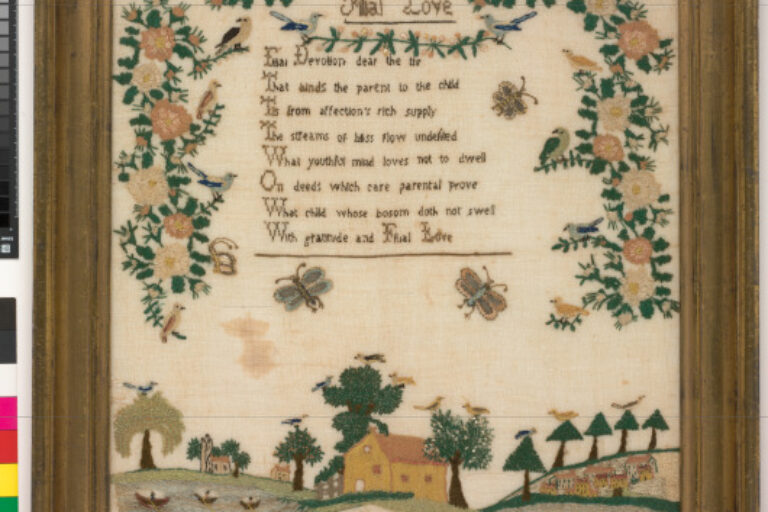 Filial Love
Filial Devotion dear the tie
That binds the parent to the child
Tis from affection's rich supply
The streams of bliss flow undefiled
What youthful mind loves not to dwell
On deeds which care parental prove
What child whose bosom doth not swell
With gratitude and Filial Love